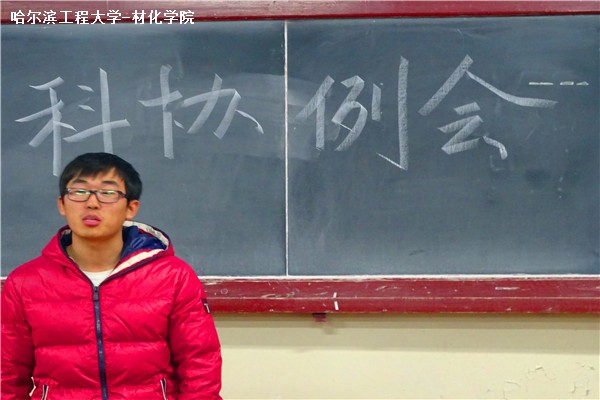 哈尔滨工程大学-材化学院
科协例会